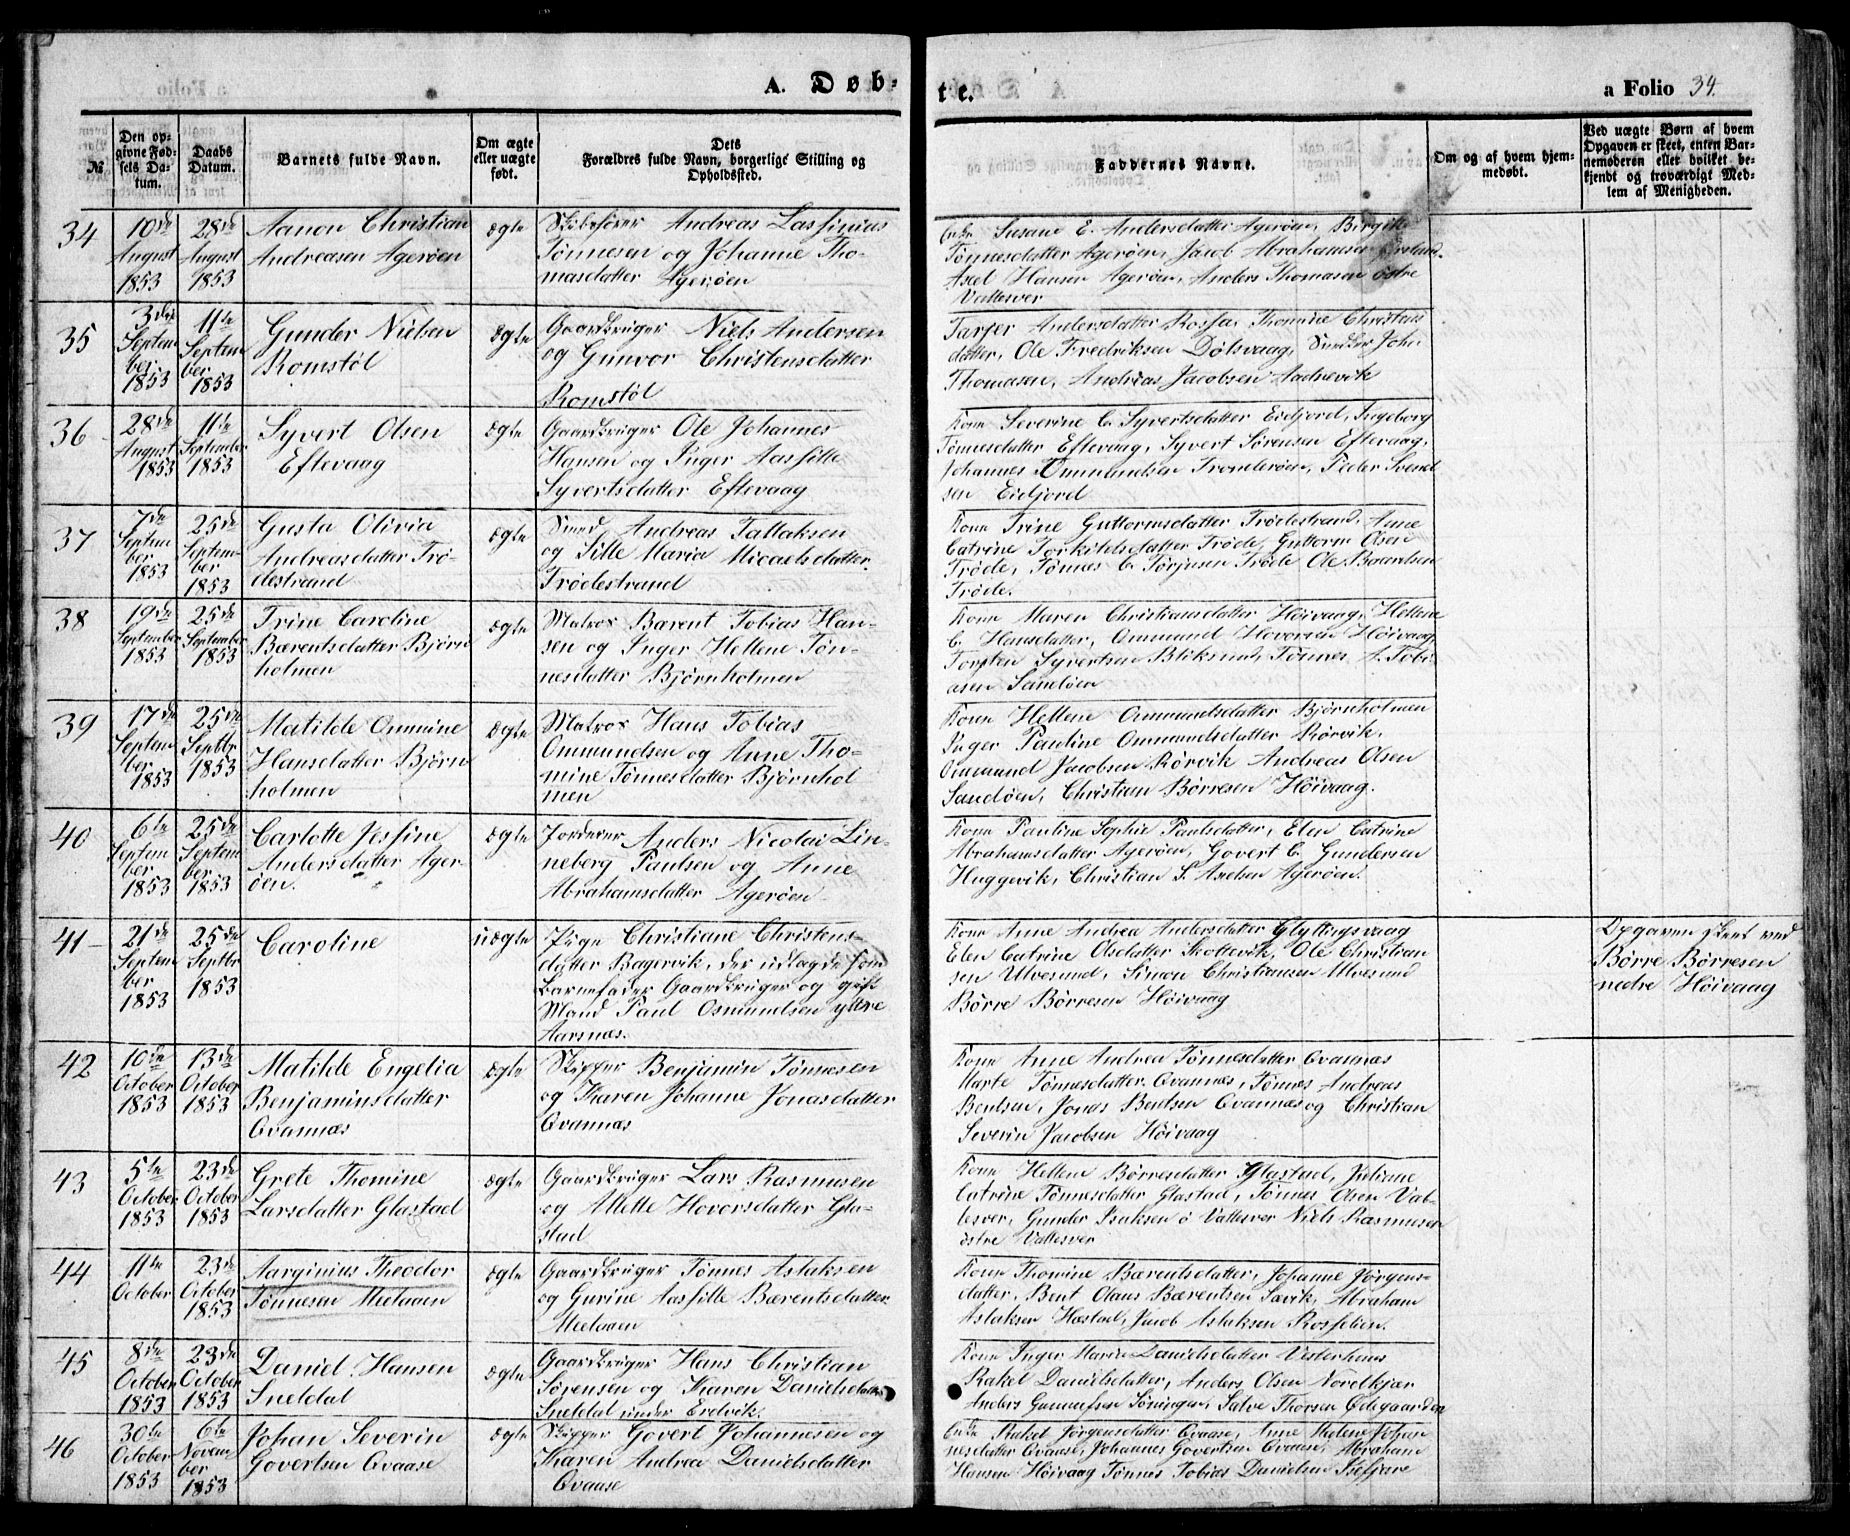 A. Døb-
te.
a Folio 34.
№
Den op-
givne Fød-
sels Da-
tum.
Daabs
Datum.
Barnets fulde Navn.
Om ægte
eller uægte
født.
Dets
Forældres fulde Navn, borgerlige Stilling og
Opholdssted.
Faddernes Navne.
Om og af hvem hjem-
medøbt.
Ved uægte Børn af hvem
Opgaven er skeet, enten Bar-
nemoderen eller hvilket be-
kjendt og troværdigt Med-
lem af Menigheden.
34
10de
August
1853
28de
August
1853
Aanon Christian
Andreasen Agerøen
ægte
Skibsfører Andreas Lassinius
Tønnesen og Johanne Tho-
masdatter Agerøen
Enke Susane E. Andersdatter Agerøen, Birgitte
Tønnesdatter Agerøen, Jacob Abrahamsen
Axel Hansen Agerøen, Anders Thomasen østre
Vallesver
35
3die
Septem
ber
1853
11te
Septem
ber
1853
Gunder Nielsen
Romstøl
ægte
Gaardbruger Niels Andersen
og Gunvor Christensdatter
Romstøl
Tarjer Andersdatter Rossa, Thomine Christens
datter, Ole Fredriksen Dølsvaag, Snedker Joh:
Thomasen, Andreas Jacobsen Aadnevik
36
28de
August
1853
11te
September
1853
Syvert Olsen
Eftevaag
ægte
Gaardbruger Ole Johannes
Hansen og Inger Aassille
Syvertsdatter Eftevaag
Kone Severine C. Syvertsdatter Eidjord, Ingeborg
Tønnesdatter Eftevaag, Syvert Sørensen Eftevaag,
Johannes Ommundsen Tronderøen, Peder Svend
sen Eidjord
37
7de
Septem
ber
1853
25de
Septem-
ber
1853
Gusta Olivia
Andreasdatter Trø-
destrand
ægte
Smed Andreas Tallaksen
og Sille Maria Micaelsdatter
Trødestrand
Kone Trine Guttormsdatter Trødestrand, Anne
Catrine Torkildsdatter Trøde, Guttorm Olsen
Trøde, Tønnes C. Torjusen Trøde Ole Baardsen
Trøde.
38
19de
September
1853
25de
September
1853
Trine Caroline
Bærentsdatter Bjørn
holmen
ægte
Matros Barent Tobias Han-
sen og Inger Hellene Tøn-
nesdatter Bjørnholmen
Kone Maren Christiansdatter Høivaag, Hellene
C. Hansdatter, Ommund Hovorsen Høivaag,
Torsten Syvertsen Bliksund, Tønnes A. Tobi-
asen Sandøen
39
17de
Septem-
ber
1853
25de
Septbr
1853
Matilde Ommine
Hansdatter Bjørn
holmen
ægte
Matros Hans Tobias
Ommundsen og Anne Tho-
mine Tønnesdatter Bjørnhol
men
Kone Hellene Ommundsdatter Bjørnholmen
Inger Pauline Ommundsdatter Rørvik,
Ommund Jacobsen Rørvik Andreas Olsen
Sandøen, Christian Børresen Høivaag.
40
6te
Septem
ber
1853
25de
Septem
ber
1853
Carlotte Jessine
Andersdatter Ager-
øen.
ægte
Jordeier Anders Nicolai Lin-
neberg Paulsen og Anne
Abrahamsdatter Agerøen
Kone Pauline Sophie Paulsdatter, Elen Catrine
Abrahamsdatter Agerøen, Govert C. Gundersen
Huggevik, Christian S. Axelsen Agerøen.
41
21de
Septem
ber
1853
25de
Septbr
1853
Caroline
uægte
Pige Christiane Christens-
datter Bagervik, der udlagde som
Barnefader Gaardbruger og gift
Mand Paul Osmundsen yttre
Aarsnæs.
Kone Anne Andrea Andersdatter Glyttingsvaag
Elen Catrine Olsdatter Skottevik, Ole Christian
sen Ulvesund, Simon Christiansen Ulvesund
Børre Børresen Høivaag
Opgaven skeet ved
Børre Børresen
nedre Høivaag
42
10de
October
1853
13de
October
1853
Matilde Engelia
Benjaminsdatter
Qvannæs
ægte
Skipper Benjamin Tønnesen
og Karen Johanne Jonasdatter
Qvannæs
Kone Anne Andrea Tønnesdatter Qvannæs
Marte Tønnesdatter Qvannæs, Tønnes Andreas
Bentsen, Jonas Bentsen Qvannæs og Christian
Severin Jacobsen Høivaag
43
5te
October
1853
23de
October
1853
Grete Thomine
Larsdatter Glastad
ægte
Gaardbruger Lars Rasmusen
og Allette Hovorsdatter Gla-
stad
Kone Hellene Børresdatter Glastad, Juliane
Catrine Tønnesdatter Glastad, Tønnes Olsen Val-
lesver, Gunder Isaksen ø Vallesver Niels Rasmusen
østre Vallesver
44
11te
October
23de
October
1853
Aarginius Theodor
Tønnesen Mielaaen
ægte
Gaardbruger Tønnes Aslaksen
og Gurine Aassille Bærentsdatter
Mielaaen
Kone Thomine Bærentsdatter, Johanne Jørgens-
datter, Bent Olaus Bærentsen Savik, Abraham
Aslaksen Hæstad, Jacob Aslaksen Rosselien.
45
8de
October
1853
23de
October
1853
Daniel Hansen
Sneldal
ægte
Gaardbruger Hans Christian
Sørensen og Karen Danielsdatter
Sneldal under Eredvik.
Kone Inger Maria Danielsdatter Vesterhuus
Rakel Danielsdatter, Anders Olsen Nordkjær
Anders Gunnulfsen Søningen, Salve Thorsen Ødegaarden
46
30te
October
1853
6te
Novem-
ber
1853
Johan Severin
Govertsen Qvaase
ægte
Skipper Govert Johannesen og
Karen Andrea Danielsdatter
Qvaase
Enke Rakel Jørgensdatter Qvaase, Anne Helene Johan
nesdatter Qvaase, Johannes Govertsen Qvaase, Abraham
Hansen Høivaag Tønnes Tobias Danielsen Isefjære